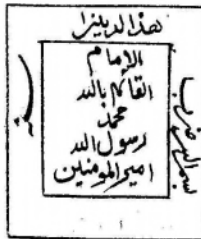 بسم الله ضرب
هذا الدينر
الامام
القائم بالله
محمد
رسول الله
امير المومنين